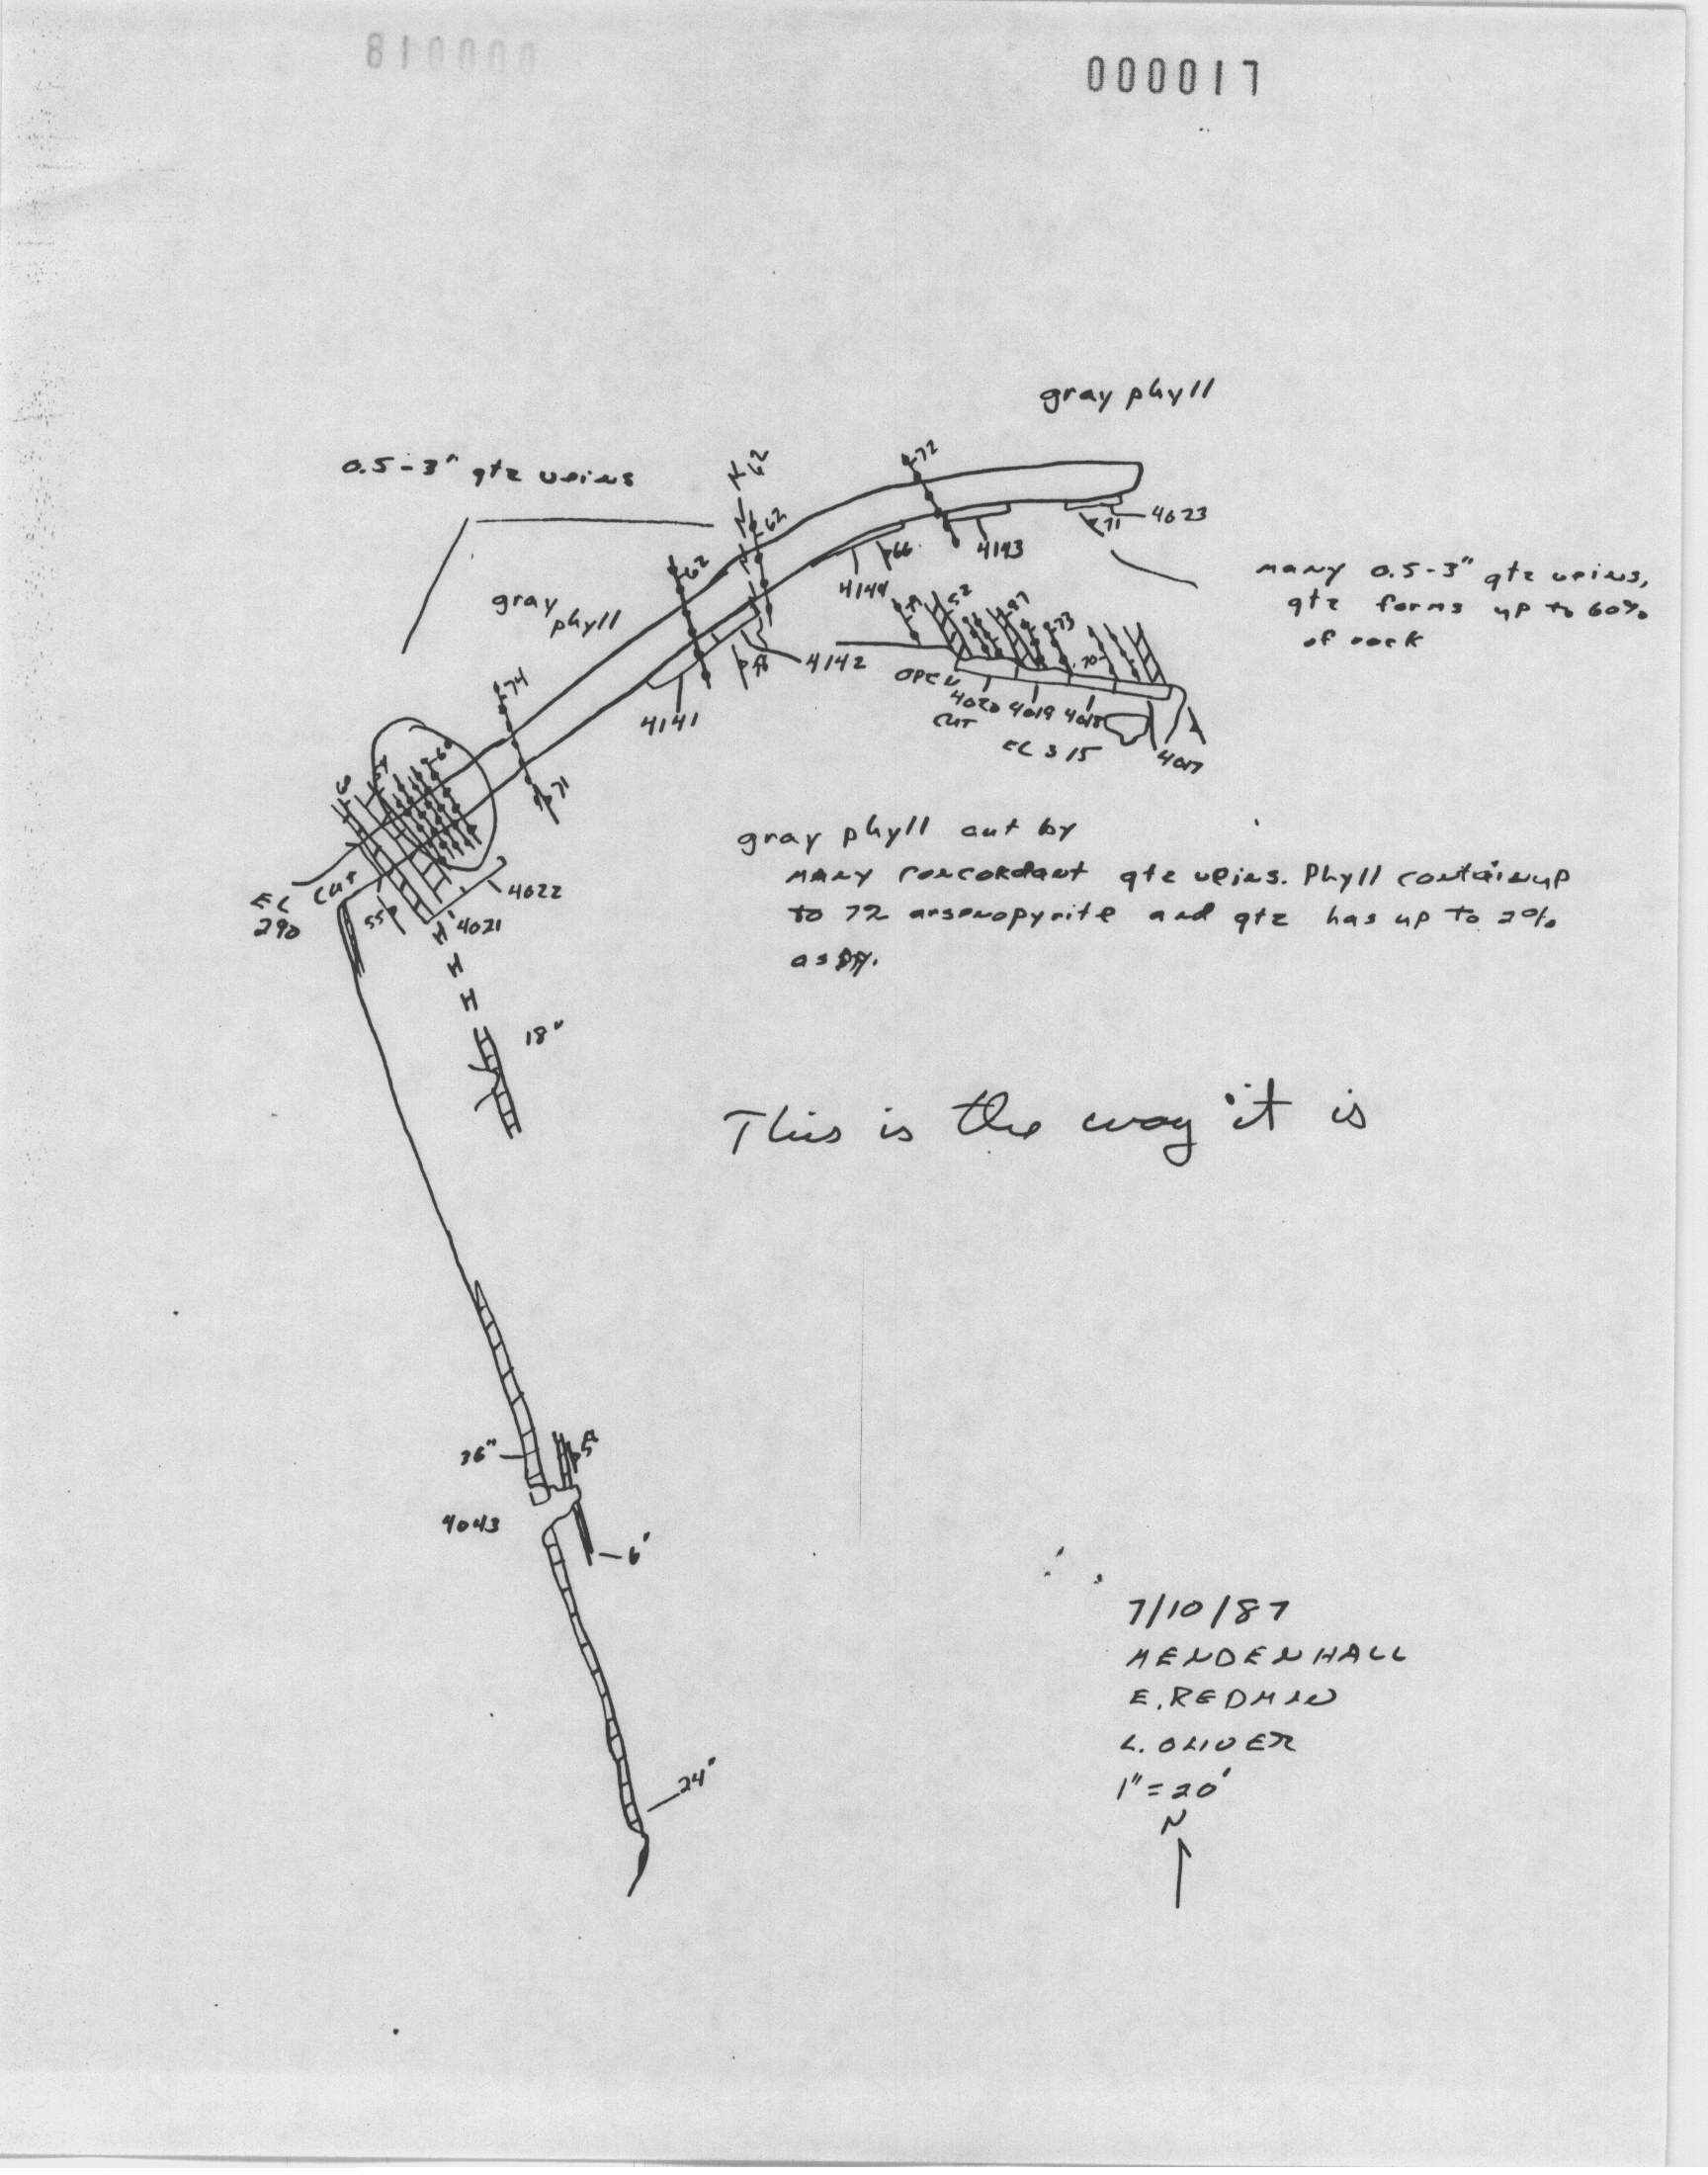 000018
000017
gray phyll
0.5-3" qtz veins
62
72
62
4023
71
62
4143
66
4144
many 0.5-3" qtz veins,
qtz forms up to 60%
of rock
gray
phyll
52
47
73
70
4142
58
74
OPEN
4020 4019 4018
CUT
EL 315
4017
4141
71
60
gray phyll cut by
many concordant qtz veins. Phyll contain up
to 72 arsenopyrite and qtz has up to 2%
aspy.
EL CUT
290
4022
55
4021
18"
This is the way it is
36"
4043
6'
24"
7/10/87
MENDENHALL
E. REDMAN
L. OLIVER
1" = 20'
N